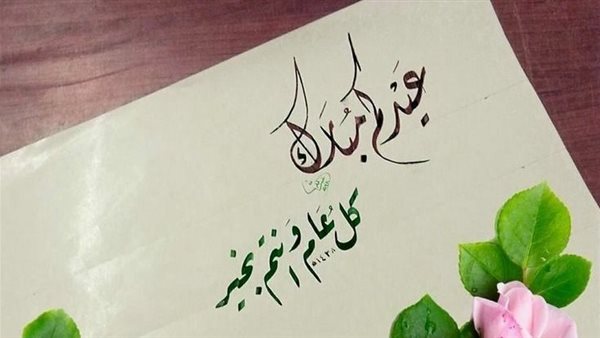 عيدكم مبارك
كل عام وانتم بخير
١٤٣٨هـ